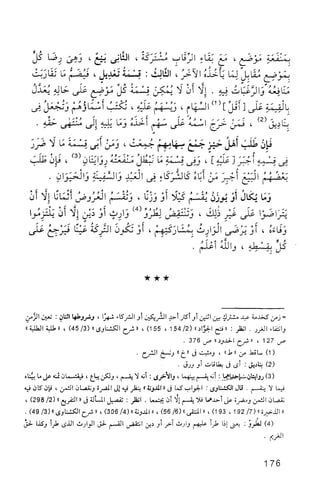 بِمَنْفَعَةِ مَوْضِعٍ ، مَعَ بَقَاءِ الرِّقَابِ مُشْتَرَكَةً ، الثَّانِي بَيْعٌ ، وَهِيَ رِضَا كُلٍّ
بِمَوْضِعٍ مُقَابِلٍ لِمَا يَأْخُذُهُ الآخَرُ ، الثَّالِثُ : قِسْمَةُ تَعْدِيلٍ ، فَيُضَمُّ مَا تَقَارَبَتْ
مَنَافِعُهُ وَالرَّغَبَاتُ فِيهِ . إِلَّا أَنْ لَا يُمْكِنَ قِسْمَةُ كُلِّ مَوْضِعٍ عَلَى حَالِهِ يُعَدَّلُ
بِالْقِيمَةِ عَلَى [ أَقَلِّ ] (1) السِّهَامِ ، وَيُسْهَمُ عَلَيْهِ ، تُكْتَبُ أَسْمَاؤُهُمْ وَتُجْعَلُ فِي
بَنَادِيقَ (2) ، فَمَنْ خَرَجَ اسْمُهُ عَلَى سَهْمٍ أَخَذَهُ وَمَا يَلِيهِ إِلَى مُنْتَهَى حَقِّهِ .
فَإِنْ طَلَبَ أَهْلُ حَيِّزٍ جَمْعَ سِهَامِهِمْ جُمِعَتْ ، وَمَنْ أَبَى قِسْمَةَ مَا لَا ضَرَرَ
فِي قِسْمِهِ أُجْبِرَ [ عَلَيْهِ ] ، وَفِي قِسْمَةِ مَا تَبْطُلُ مَنْفَعَتُهُ رِوَايَتَانِ (3) ، فَإِنْ طَلَبَ
بَعْضُهُمُ الْبَيْعَ أُجْبِرَ مَنْ أَبَاهُ كَالشُّرَكَاءِ فِي الْعَبْدِ وَالسَّفِينَةِ وَالْحَيَوَانِ .
وَمَا يُكَالُ أَوْ يُوزَنُ يُقْسَمُ كَيْلًا أَوْ وَزْنًا ، وَتُقْسَمُ الْعُرُوضُ أَثْمَانًا إِلَّا أَنْ
يَتَرَاضَوْا عَلَى غَيْرِ ذَلِكَ ، وَتَنْتَقِضُ لِطُرُوِّ (4) وَارِثٍ أَوْ دَيْنٍ إِلَّا أَنْ يَلْتَزِمُوا
وَفَاءَهُ ، أَوْ يَرْضَى الْوَارِثُ بِمُشَارَكَتِهِمْ ، أَوْ تَكُونَ التَّرِكَةُ عَيْنًا فَيَرْجِعُ عَلَى
كُلٍّ بِقِسْطِهِ ، وَاللَّهُ أَعْلَمُ .
★★★
= زمن كخدمة عبد مشترك بين اثنين أو أكثر أحدِ الشريكين أو الشركاء شهرًا ، وشروطها اثنان : تعين الزمن
وانتفاء الغرر . انظر : « فتح الجوّاد » (2/154 ، 155) ، « شرح الكشناوي » (3/45) ، « طلبة الطلبة »
ص 127 ، « شرح الحدود » ص 376 .
(1) ساقط من « ط » ، ومثبت في « خ » ونسخ الشرح .
(2) بناديق : أي في بطاقات أو ورق .
(3) روايتان إحداهما : أنه يقسم بينهما ، والأخرى : أنه لا يقسم ، ولكن يباع ، فيقتسمان ثمنه على ما بيناه
فيما لا ينقسم . قال الكشناوي : الجواب كما في « المدونة » ينظر فيه إلى المضرة ونقصان الثمن ، فإن كان فيه
نقصان الثمن ومضرة على أحدهما فلا يقسم إلّا أن يجتمعا . انظر : تفصيل المسألة في « التفريع » (2/298) ،
« الذخيرة » (7/192 ، 193) ، « المنتقى » (6/56) ، « المدونة » (4/306) ، « شرح الكشناوي » (3/49) .
(4) لطُروّ : يعني إذا طرأ عليهم وارث آخر أو دين انتقض القسم لحق الوارث الذي طرأ وكذا لحق
الغريم .
176